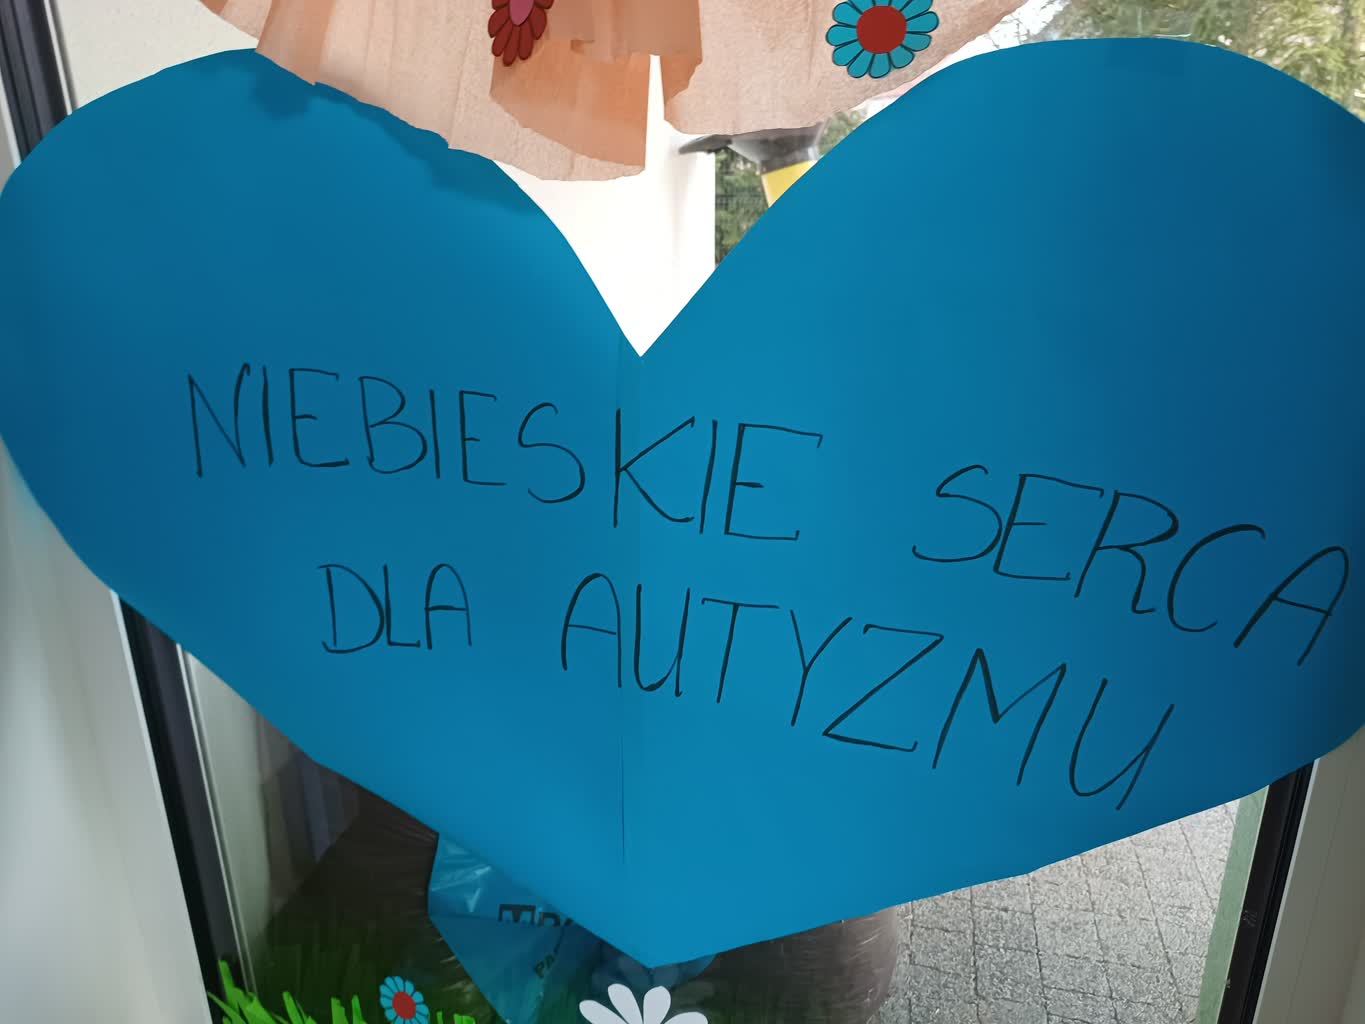 NIEBIESKIE SERCA
DLA AUTYZMU